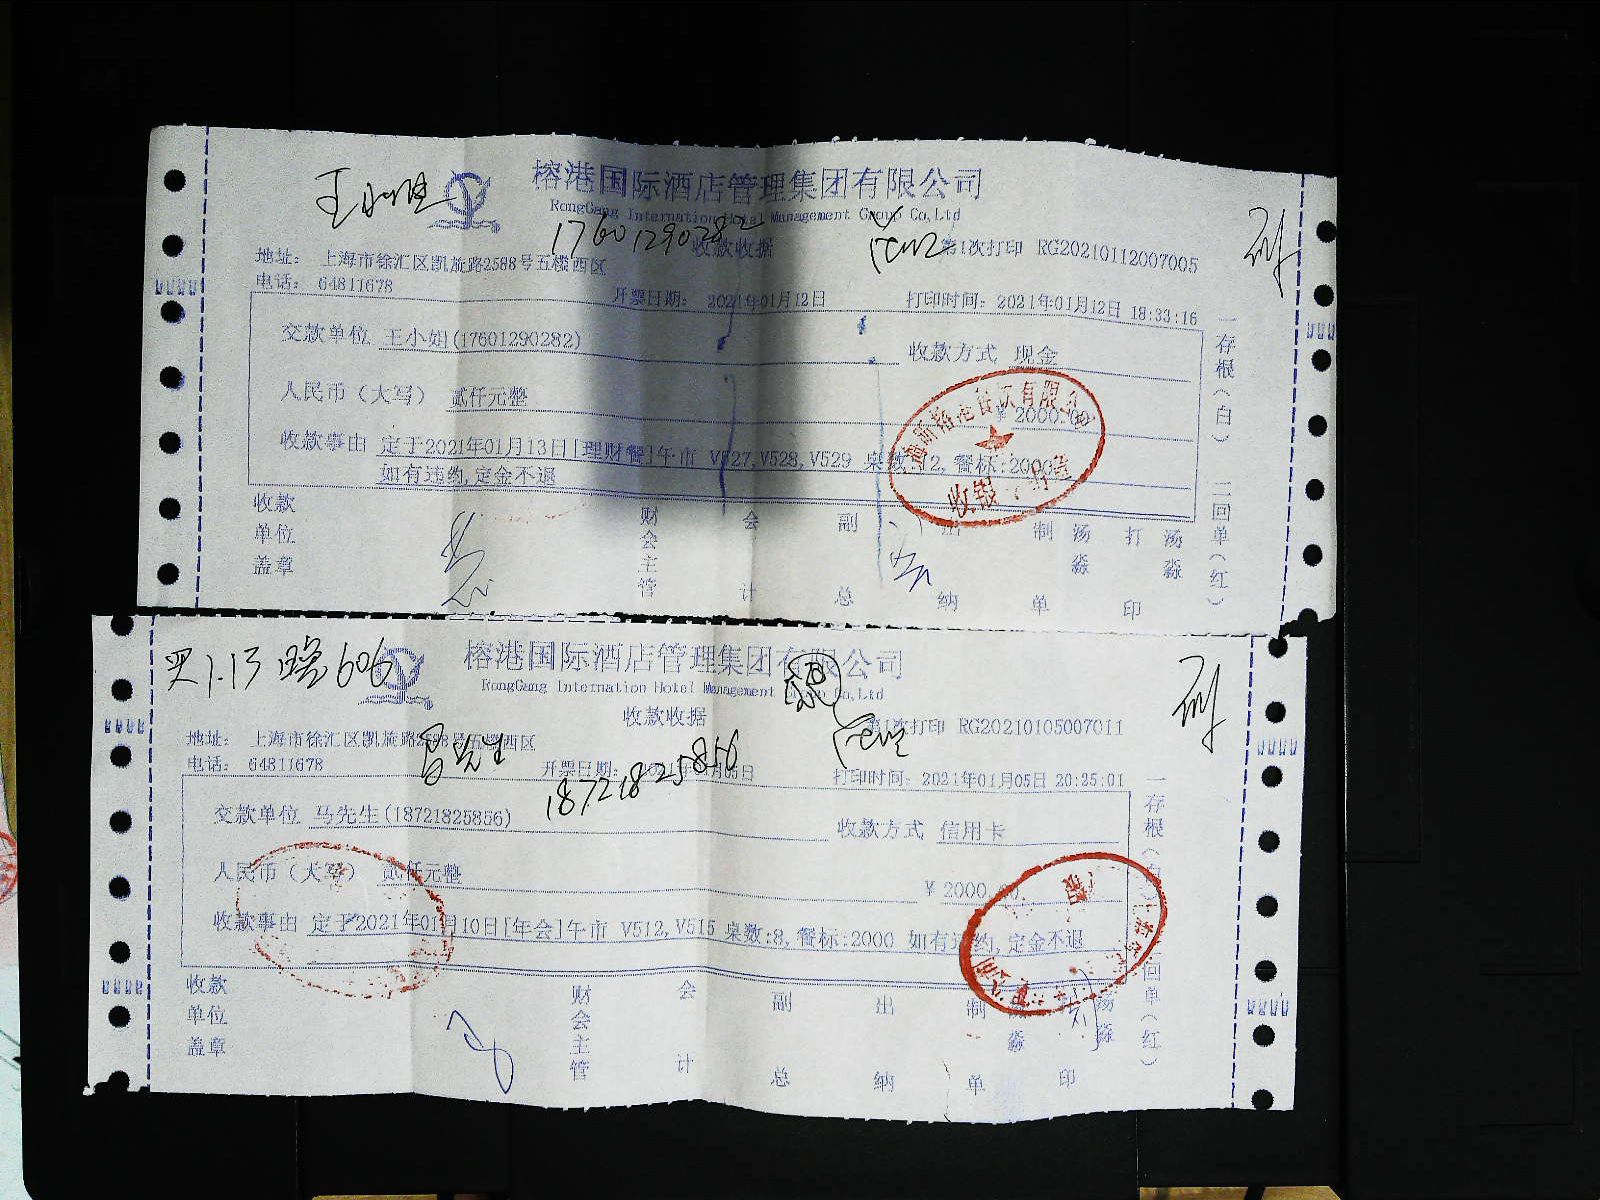 榕港国际酒店管理集团有限公司
RongGang Internation Hotel Management Group Co,Ltd
17601290282
收款收据
第1次打印 RG20210112007005
地址： 上海市徐汇区凯旋路2588号五楼西区
电话： 64811678
开票日期： 2021年01月12日
打印时间：2021年01月12日 18:33:16
交款单位 王小姐(17601290282)
收款方式 现金
人民币（大写） 贰仟元整
¥ 2000.00
收款事由 定于2021年01月13日[理财餐]午市 V527,V528,V529 桌数:12,餐标:2000
如有违约,定金不退
收款单位盖章
财会主管
会计
副总
出纳
制单
汤淼
打印
汤淼
一存根（白） 二回单（红）
收银
榕港国际酒店管理集团有限公司
RongGang Internation Hotel Management Group Co,Ltd
1.13 606
收款收据
第1次打印 RG20210105007011
地址： 上海市徐汇区凯旋路2588号五楼西区
电话： 64811678
先生
18721825856
开票日期： 2021年01月05日
打印时间：2021年01月05日 20:25:01
交款单位 马先生(18721825856)
收款方式 信用卡
人民币（大写） 贰仟元整
¥ 2000.00
收款事由 定于2021年01月10日[年会]午市 V512,V515 桌数:8,餐标:2000 如有违约,定金不退
收款单位盖章
财会主管
会计
副总
出纳
制单
汤淼
打印
汤淼
一存根（白） 二回单（红）